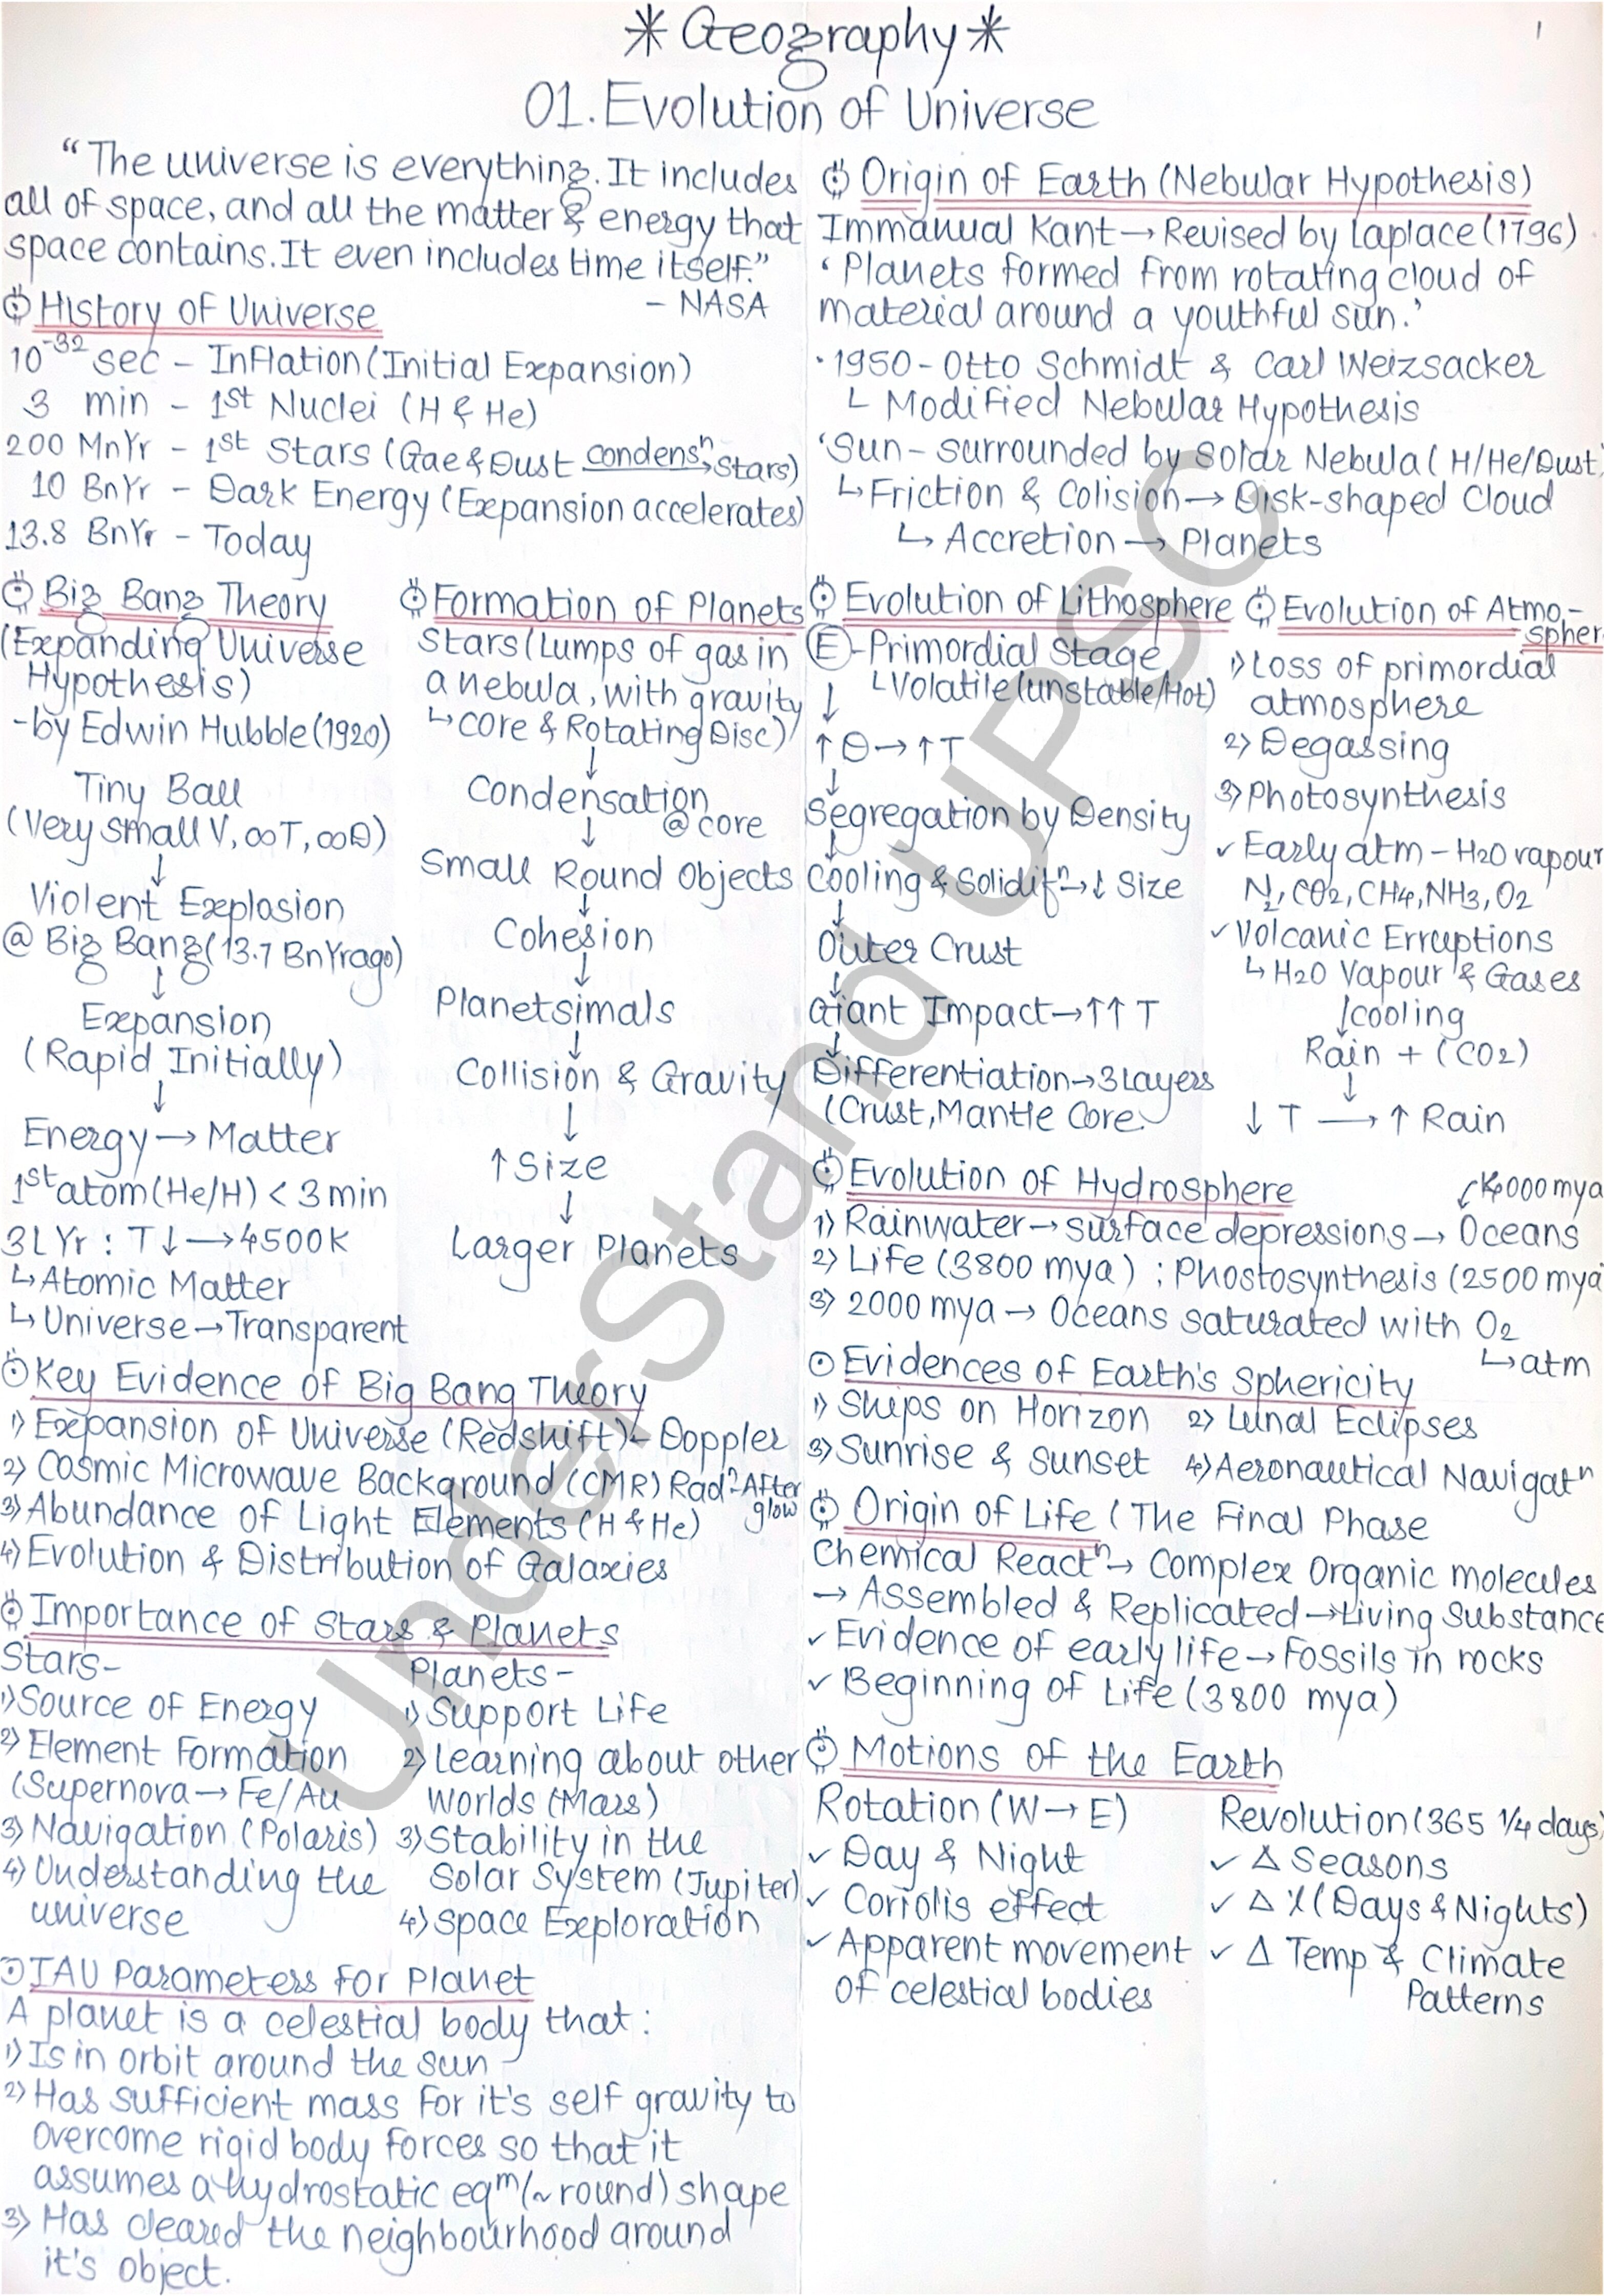 * Geography *
1
01. Evolution of Universe
"The universe is everything. It includes
all of space, and all the matter & energy that
space contains. It even includes time itself."
- NASA
History of Universe
10^-32 sec - Inflation (Initial Expansion)
3 min - 1st Nuclei (H & He)
200 MnYr - 1st Stars (Gae & Dust condensⁿ→ Stars)
10 BnYr - Dark Energy (Expansion accelerates)
13.8 BnYr - Today
Big Bang Theory
(Expanding Universe
Hypothesis)
- by Edwin Hubble (1920)
Tiny Ball
(Very small V, ∞T, ∞D)
↓
Violent Explosion
@ Big Bang (13.7 BnYr ago)
↓
Expansion
(Rapid Initially)
↓
Energy → Matter
1st atom (He/H) < 3 min
3L Yr : T↓ → 4500K
↳ Atomic Matter
↳ Universe → Transparent
Formation of Planets
Stars (Lumps of gas in
a nebula, with gravity
↳ core & Rotating Disc)
↓
Condensation
@ core
↓
Small Round Objects
↓
Cohesion
↓
Planetsimals
↓
Collision & Gravity
↓
↑ Size
↓
Larger Planets
Key Evidence of Big Bang Theory
1) Expansion of Universe (Redshift) - Doppler
2) Cosmic Microwave Background (CMR) Radⁿ - After
glow
3) Abundance of Light Elements (H & He)
4) Evolution & Distribution of Galaxies
Importance of Stars & Planets
Stars -
1) Source of Energy
2) Element Formation
(Supernova → Fe/Au
3) Navigation (Polaris)
4) Understanding the
universe
Planets -
1) Support Life
2) Learning about other
Worlds (Mars)
3) Stability in the
Solar System (Jupiter)
4) Space Exploration
IAU Parameters for Planet
A planet is a celestial body that :
1) Is in orbit around the sun
2) Has sufficient mass for it's self gravity to
overcome rigid body forces so that it
assumes a hydrostatic eqᵐ (~ round) shape
3) Has cleared the neighbourhood around
it's object.
Origin of Earth (Nebular Hypothesis)
Immanual Kant → Revised by Laplace (1796)
'Planets formed from rotating cloud of
material around a youthful sun.'
· 1950 - Otto Schmidt & Carl Weizsacker
↳ Modified Nebular Hypothesis
'Sun - surrounded by Solar Nebula (H/He/Dust)
↳ Friction & Colision → Disk-shaped Cloud
↳ Accretion → Planets
Evolution of Lithosphere
(E) - Primordial Stage
↳ Volatile (unstable/Hot)
↓
↑ D → ↑ T
↓
Segregation by Density
↓
Cooling & Solidifⁿ → ↓ Size
↓
Outer Crust
↓
Giant Impact → ↑↑ T
↓
Differentiation → 3 Layers
(Crust, Mantle Core)
Evolution of Atmo-
spher
1) Loss of primordial
atmosphere
2) Degassing
3) Photosynthesis
✓ Early atm - H2O vapour
N2, CO2, CH4, NH3, O2
✓ Volcanic Erruptions
↳ H2O Vapour & Gases
↓ cooling
Rain + (CO2)
↓
↓ T → ↑ Rain
Evolution of Hydrosphere
4000 mya
1) Rainwater → surface depressions → Oceans
2) Life (3800 mya) ; Phostosynthesis (2500 mya
3) 2000 mya → Oceans saturated with O2
↳ atm
Evidences of Earth's Sphericity
1) Ships on Horizon 2) Lunal Eclipses
3) Sunrise & Sunset 4) Aeronautical Navigatⁿ
Origin of Life (The Final Phase
Chemical Reactⁿ → Complex Organic molecules
→ Assembled & Replicated → Living Substance
✓ Evidence of early life → Fossils in rocks
✓ Beginning of Life (3800 mya)
Motions of the Earth
Rotation (W → E)
✓ Day & Night
✓ Coriolis effect
✓ Apparent movement
of celestial bodies
Revolution (365 1/4 days)
✓ Δ Seasons
✓ Δ (Days & Nights)
✓ Δ Temp & Climate
Patterns
UnderStand UPSC